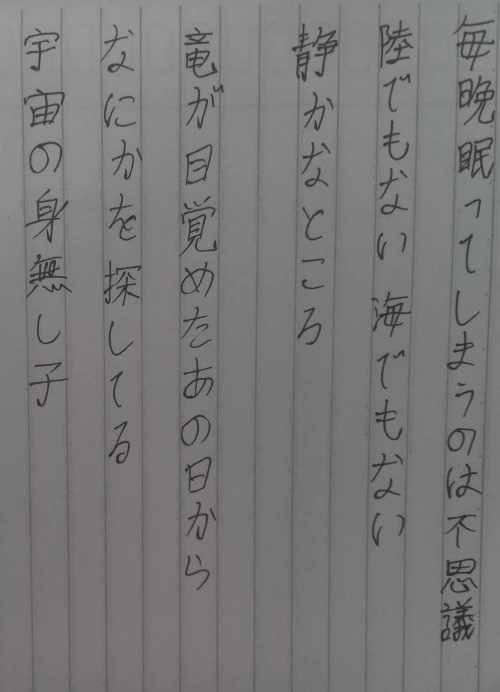 毎晩眠ってしまうのは不思議
陸でもない 海でもない
静かなところ
竜が目覚めたあの日から
なにかを探してる
宇宙の身無し子